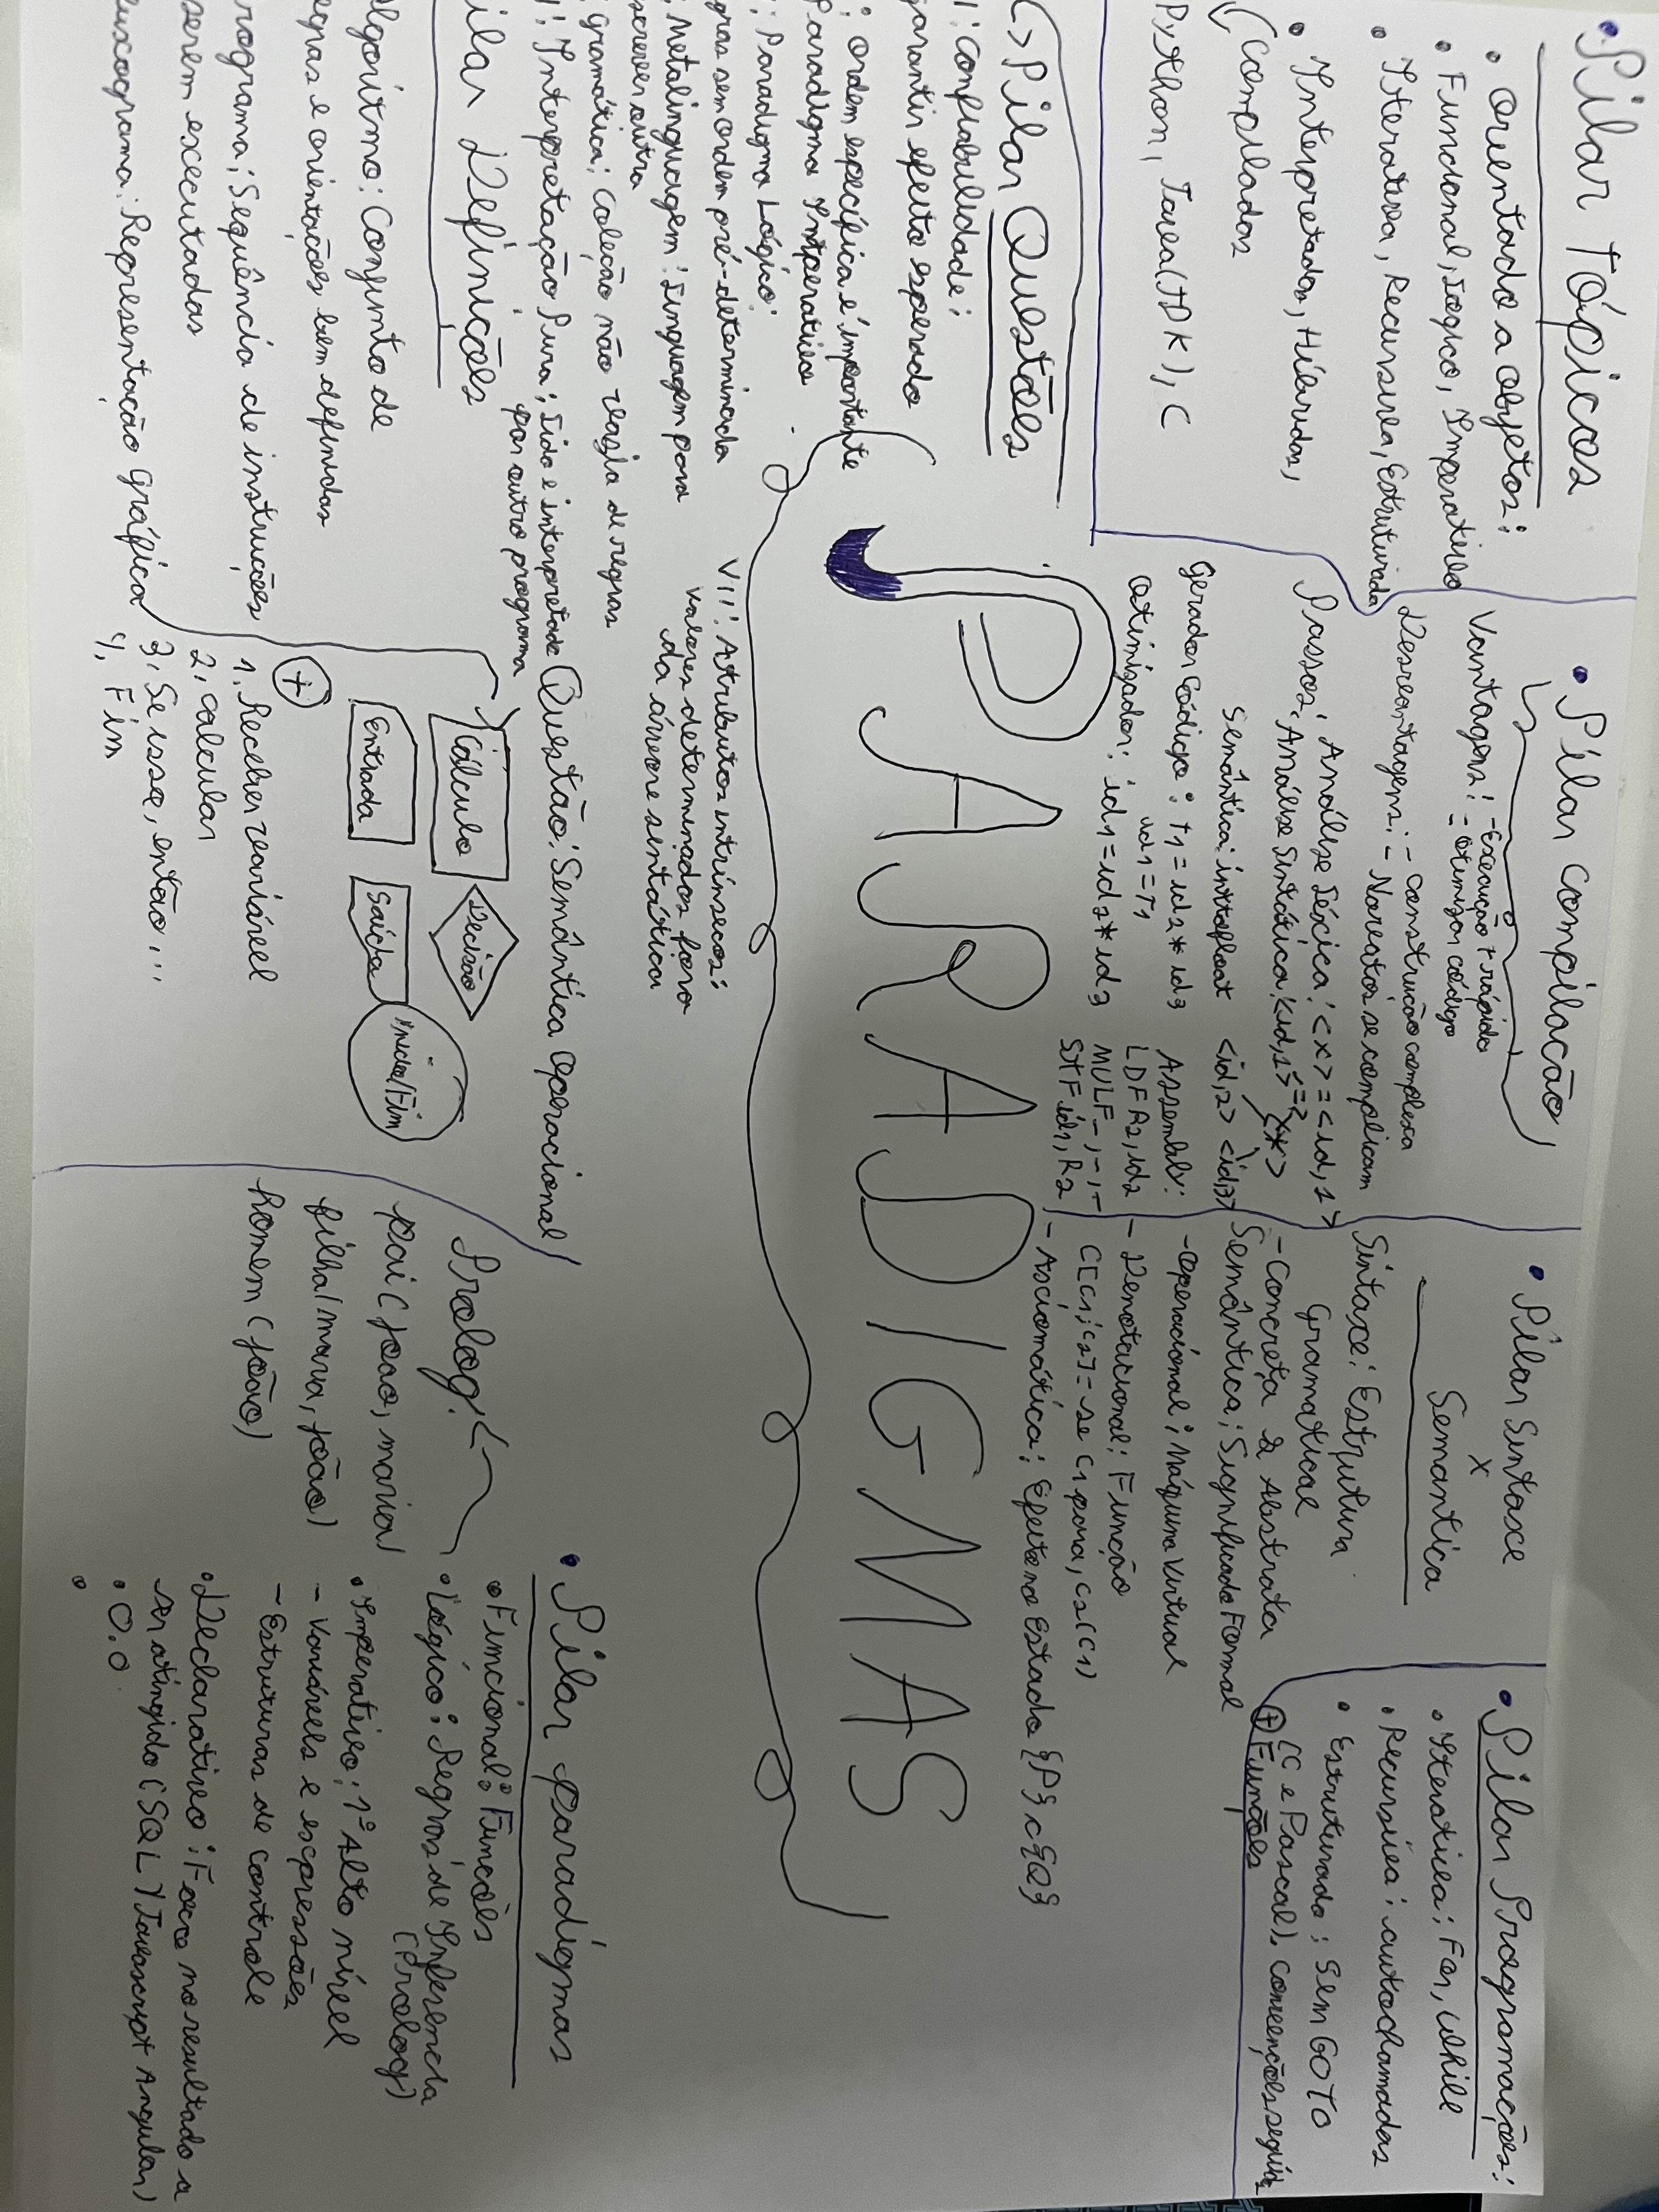 • Pilar Tópicos
• Orientado a Objetos:
• Funcional, Lógico, Imperativo
• Iterativa, Recursiva, Estruturada
• Interpretadas, Híbridas,
Compiladas
Python, Java(JDK), C
• Pilar Compilação
Vantagens: - Execução + rápida
- Otimizar código
Desvantagens: - construção complexa
- Novatos se complicam
Passos: Análise Léxica: <x> = <id,1>
Análise Sintática: <id,1> <*>
<id,2> <id,3>
Semântica: inttofloat
Gerador Código: t1 = id2 * id3
id1 = T1
Otimizador: id1 = id2 * id3
Assembly:
LDF R2, id2
MULF -, -, -
STF id1, R2
• Pilar Sintaxe
x
Semantica
Sintaxe: Estrutura
Gramatical
- Concreta & Abstrata
Semântica: Significado Formal
- Operacional: Máquina Virtual
- Denotacional: Função
C[C1;C2] = se C1 para, C2(C1)
- Axiomática: Efeito no Estado {P} c {Q}
• Pilar Programações:
• Iterativa: For, While
• Recursiva: autochamadas
• Estruturado: Sem GOTO
(C e Pascal), convenções seguidas
+ Funções
PARADIGMAS
Pilar Questões
I: Confiabilidade:
garantir efeito esperado
: Ordem específica é importante
Paradigma Imperativo
: Paradigma Lógico:
gras sem ordem pré-determinada
: Metalinguagem: Linguagem para
screver outra
: Gramática: Coleção não vazia de regras
: Interpretação Pura: Lido e interpretado
por outro programa
VII: Atributos intrínsecos:
Valores determinados fora
da árvore sintática
ilar Definições
lgoritmo: Conjunto de
egras e orientações bem definidas
rograma: Sequência de instruções
serem executadas
uxograma: Representação Gráfica
Questão: Semântica Operacional
Cálculo
Decisão
Entrada
Saída
Início/Fim
+
1. Receber variável
2. calcular
3. Se isso, então...
4. Fim
Prolog:
pai (joao, maria)
filha (maria, joão)
homem (joão)
• Pilar paradigmas
• Fimcional: Funcões
• Lógico: Regras de Inferencia
(Prolog)
• Imperativo: 1º Alto nível
- Variáveis e expressões
- Estruturas de controle
• Declarativo: Foco no resultado a
ser atingido (SQL Y Javascript Angular)
• O.O